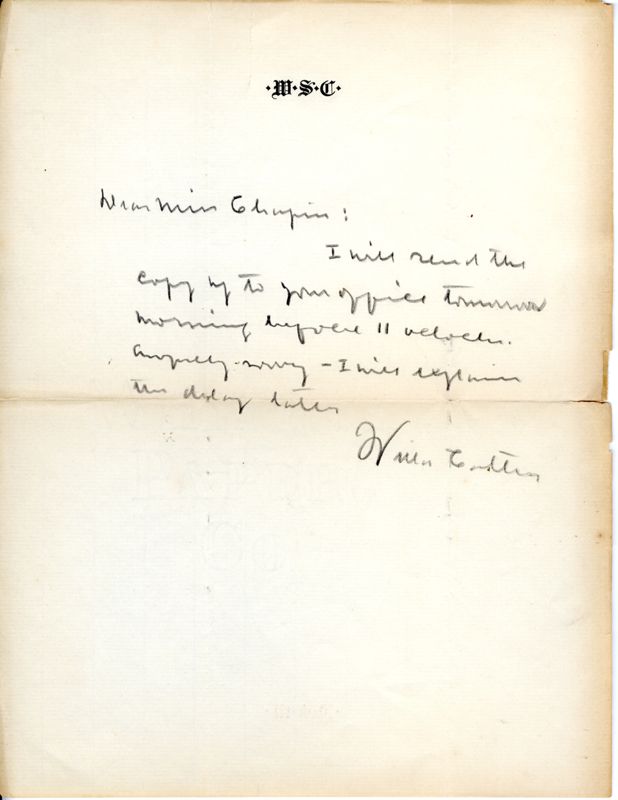 ·W·S·C·
Dear Miss Chapin:
I will send the
copy up to your office tomorrow
morning before 11 oclock.
Awfully sorry - I will explain
the delay later
Willa Cather